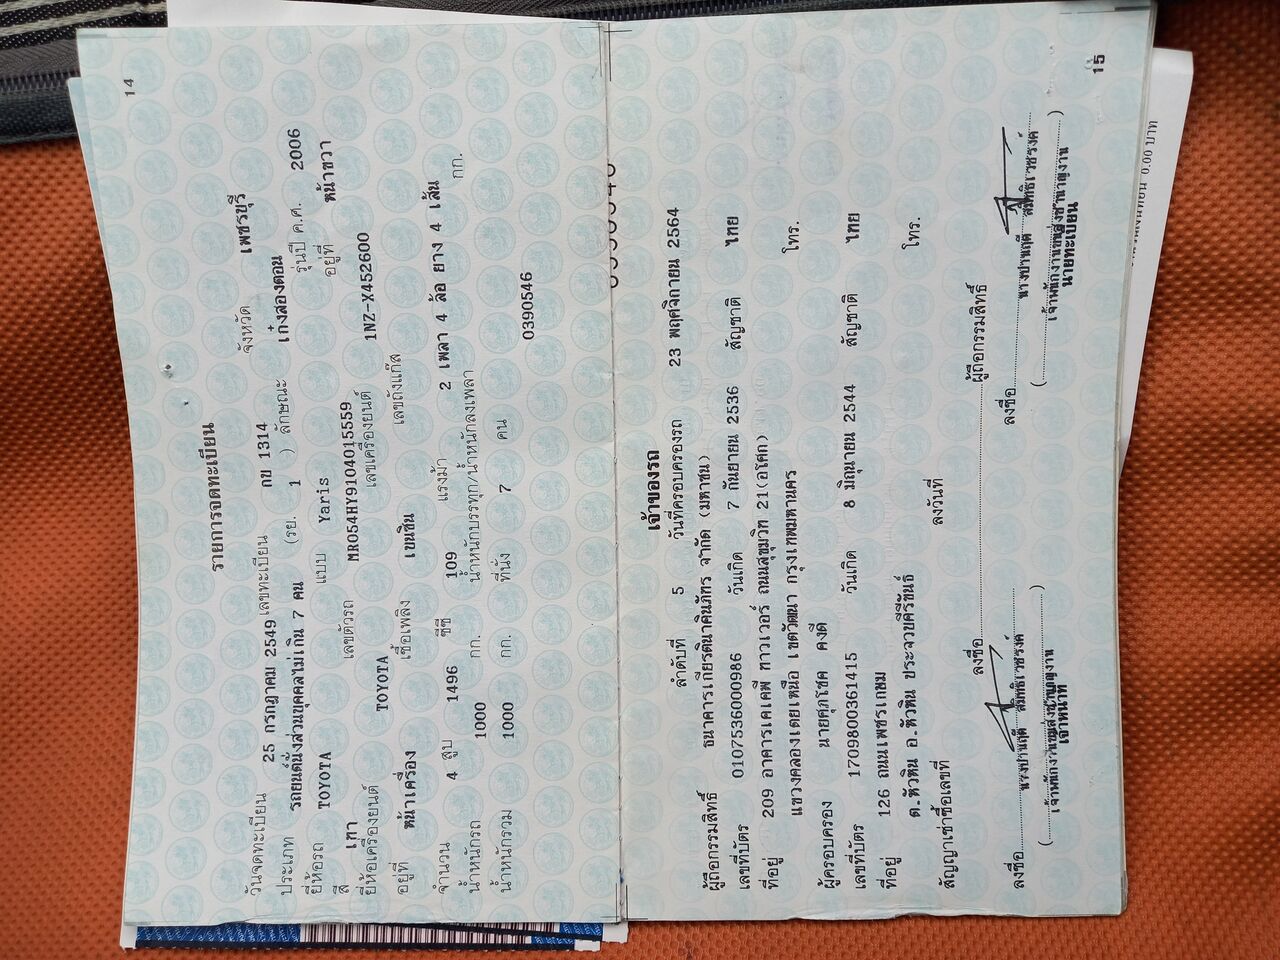 14
รายการจดทะเบียน
วันจดทะเบียน 25 กรกฎาคม 2549 เลขทะเบียน กข 1314 จังหวัด เพชรบุรี
ประเภท รถยนต์นั่งส่วนบุคคลไม่เกิน 7 คน (รย. 1 ) ลักษณะ เก๋งสองตอน
ยี่ห้อรถ TOYOTA แบบ Yaris รุ่นปี ค.ศ. 2006
สี เทา เลขตัวรถ MR054HY9104015559 อยู่ที่ หน้าขวา
ยี่ห้อเครื่องยนต์ TOYOTA เลขเครื่องยนต์ 1NZ-X452600
อยู่ที่ หน้าเครื่อง เชื้อเพลิง เบนซิน เลขถังแก๊ส
จำนวน 4 สูบ 1496 ซีซี 109 แรงม้า 2 เพลา 4 ล้อ ยาง 4 เส้น
น้ำหนักรถ 1000 กก. น้ำหนักบรรทุก/น้ำหนักลงเพลา กก.
น้ำหนักรวม 1000 กก. ที่นั่ง 7 คน
0390546
เจ้าของรถ
ลำดับที่ 5 วันที่ครอบครองรถ 23 พฤศจิกายน 2564
ผู้ถือกรรมสิทธิ์ ธนาคารเกียรตินาคินภัทร จำกัด (มหาชน)
เลขที่บัตร 0107536000986 วันเกิด 7 กันยายน 2536 สัญชาติ ไทย
ที่อยู่ 209 อาคารเคเคพี ทาวเวอร์ ถนนสุขุมวิท 21(อโศก)
แขวงคลองเตยเหนือ เขตวัฒนา กรุงเทพมหานคร โทร.
ผู้ครอบครอง นายศุภโชค คงดี
เลขที่บัตร 1709800361415 วันเกิด 8 มิถุนายน 2544 สัญชาติ ไทย
ที่อยู่ 126 ถนนเพชรเกษม
ต.หัวหิน อ.หัวหิน ประจวบคีรีขันธ์ โทร.
สัญญาเช่าซื้อเลขที่ ลงวันที่
ลงชื่อ ผู้ถือกรรมสิทธิ์
ลงชื่อ ลงชื่อ
เจ้าหน้าที่ นายทะเบียน
15
0.00 บาท